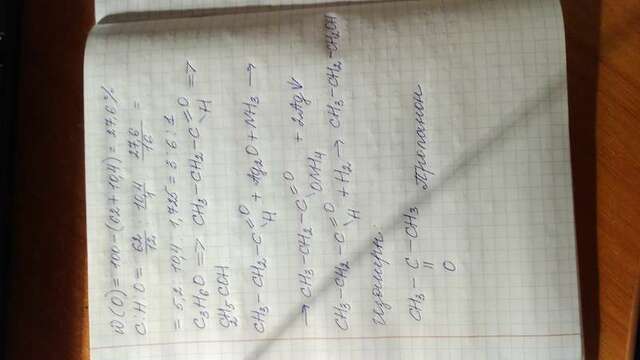 W(O) = 100 - (62 + 10,4) = 27,6%
C : H : O = 62/12 : 10,4/1 : 27,6/16 =
= 5,2 : 10,4 : 1,725 = 3 : 6 : 1
C3H6O => CH3-CH2-C=O H =>
C2H5COH
CH3-CH2-C=O H + Ag2O + NH3 →
→ CH3-CH2-C=O ONH4 + 2Ag↓
CH3-CH2-C=O H + H2 → CH3-CH2-CH2OH
изомеры
CH3-C-CH3 Пропанон
||
O